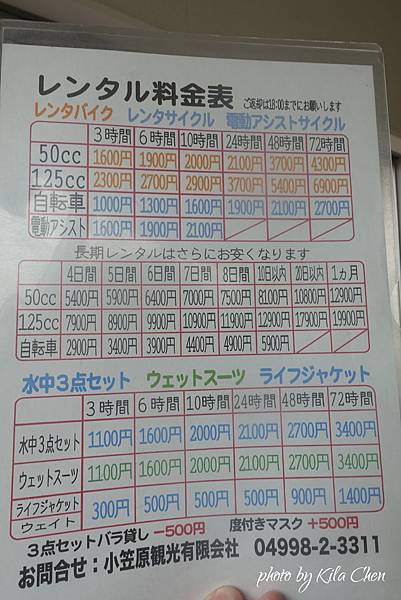 レンタル料金表 ご返却は18:00までにお願いします
レンタバイク レンタサイクル 電動アシストサイクル
3時間 6時間 10時間 24時間 48時間 72時間
50cc 1600円 1900円 2000円 2100円 3700円 4300円
125cc 2300円 2700円 2900円 3700円 5400円 6900円
自転車 1000円 1300円 1600円 1900円 2100円 2700円
電動アシスト 1600円 1900円 2100円
長期レンタルはさらにお安くなります
4日間 5日間 6日間 7日間 8日間 10日以内 20日以内 1ヵ月
50cc 5400円 5900円 6400円 7000円 7500円 8100円 10800円 12900円
125cc 7900円 8900円 9900円 10900円 11900円 12900円 17900円 19900円
自転車 2900円 3400円 3900円 4400円 4900円 5900円
水中3点セット ウェットスーツ ライフジャケット
3時間 6時間 10時間 24時間 48時間 72時間
水中3点セット 1100円 1600円 2000円 2100円 2700円 3400円
ウェットスーツ 1100円 1600円 2000円 2100円 2700円 3400円
ライフジャケット 300円 500円 500円 500円 900円 1400円
ウェイト
3点セットバラ貸し −500円 度付きマスク +500円
お問合せ：小笠原観光有限会社 04998-2-3311
photo by Kila Chen